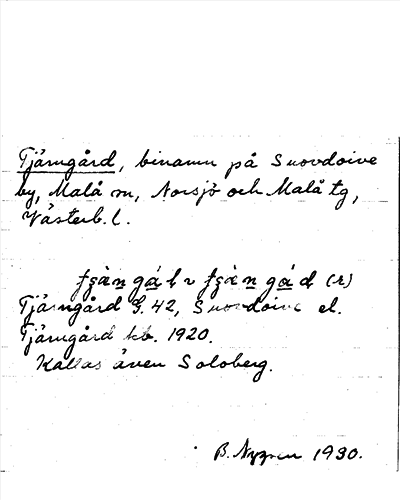 Tjärngård, binamn på Suovdoive
by, Malå sn, Norsjö och Malå tg,
Västerb. l.
Tjärngård G. 42, Suovdoive el.
Tjärngård kb. 1920.
Kallas även Soloberg.
B. Nygren 1930.